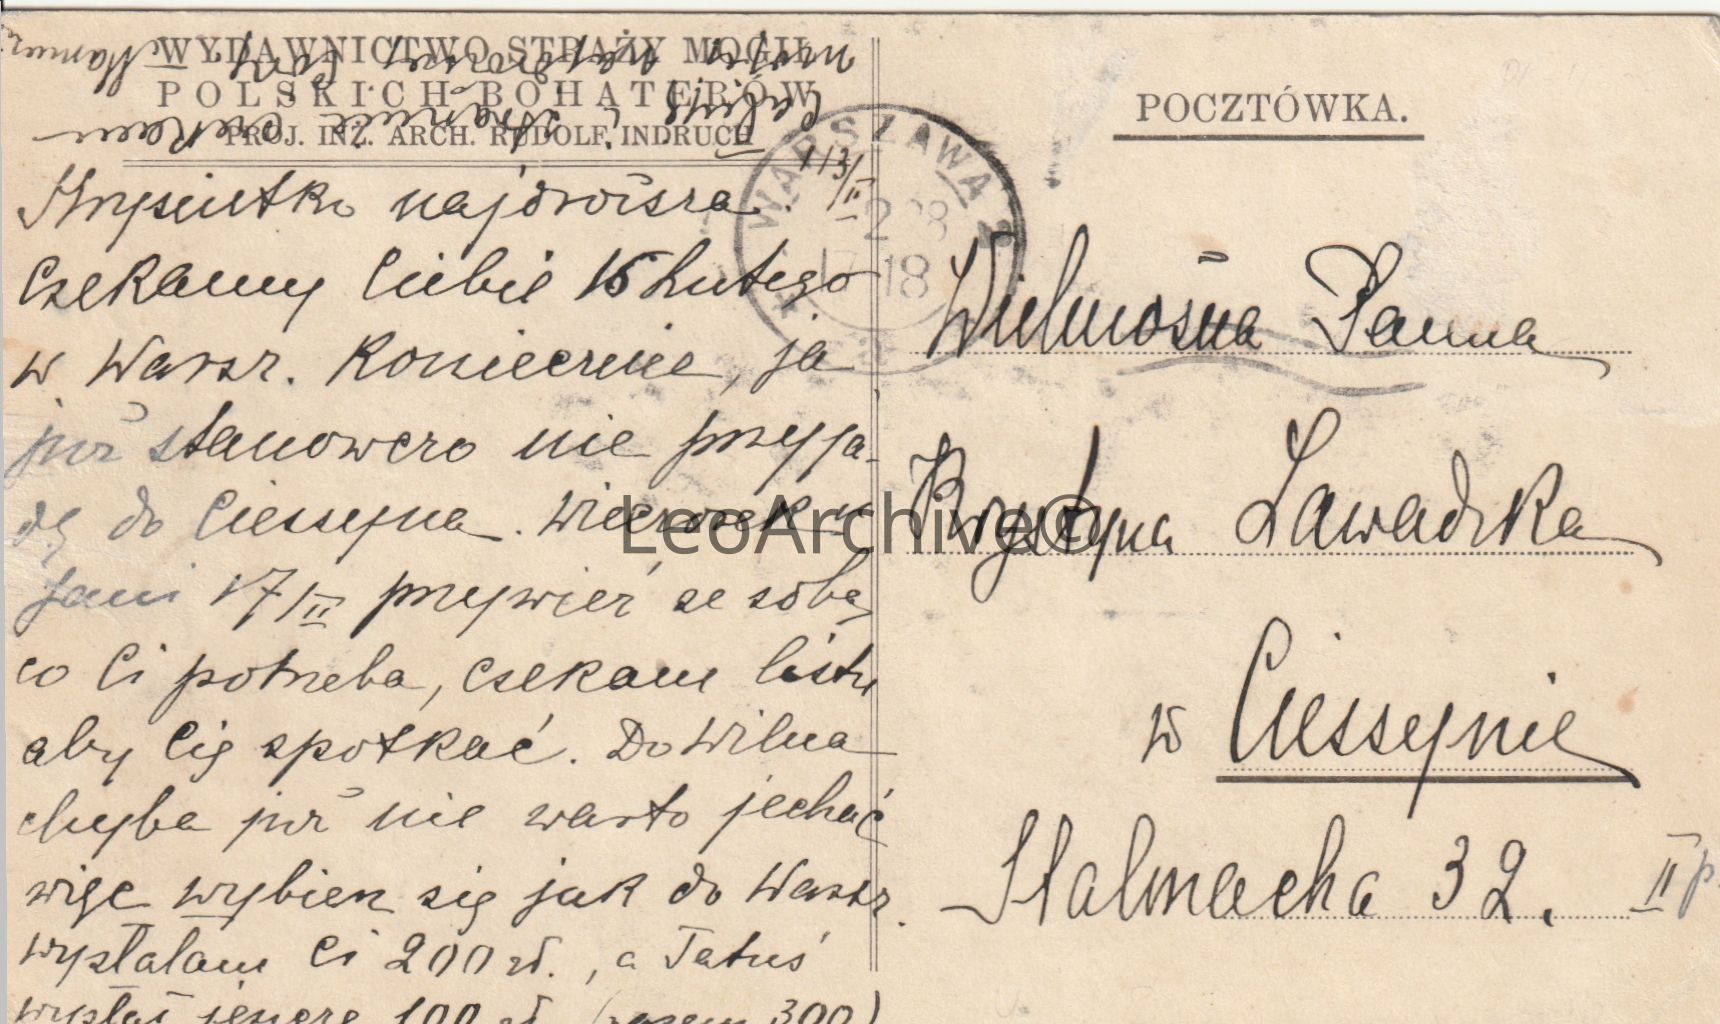 WYDAWNICTWO STRAŻY MOGIŁ
POLSKICH BOHATERÓW
PROJ. INŻ. ARCH. RUDOLF INDRUCH
Krysieńko najdroższa. 13/II
czekamy Ciebie 16 lutego
w Warsz. koniecznie, ja
już stanowczo nie przyja-
dę do Cieszyna. Wieczorek u
Jani 17/II przywieź ze sobą
co Ci potrzeba, czekam listu
aby Cię spotkać. Do Wilna
chyba już nie warto jechać
więc wybierz się jak do Warsz.
wysłałam Ci 200 zł., a Tatuś
wysłał jeszcze 100 zł (razem 300)
WARSZAWA 2
POCZTÓWKA.
Wielmożna Panna
Krystyna Zawadzka
w Cieszynie
Stalmacha 32. II p.
LeoArchive©